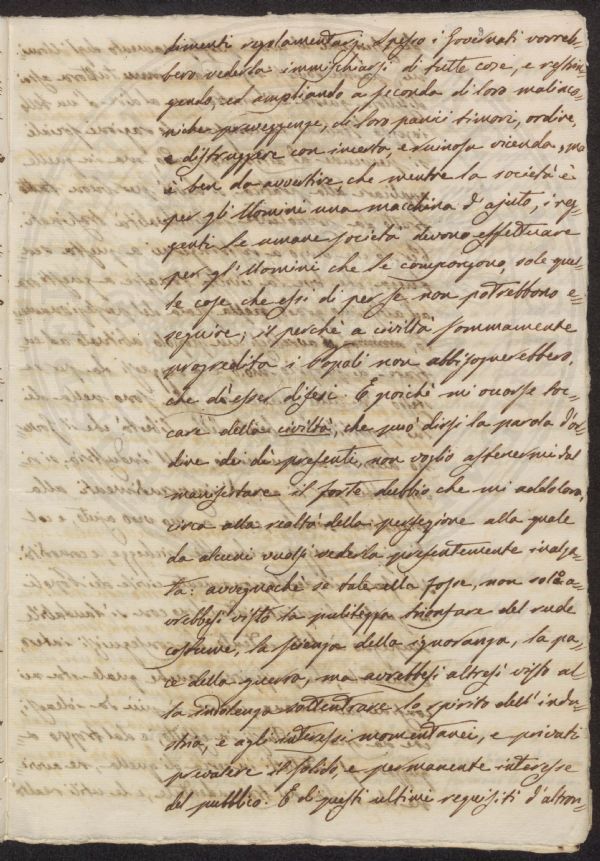 dimenti regolamentarj. Spesso i Governati vorreb-
bero vederla immischiarsi di tutte cose, e restrin
gendo, ed ampliando a seconda di loro malinco-
niche preveggenze, di loro panici timori, ordire,
e distruggere con incerta e ruinosa vicenda, ma
è ben da avvertire, che mentre la società è
per gli Uomini una macchina d'ajuto, i reg-
genti le umane società devono effettuare
per gl'Uomini che le compongono, sole ques-
te cose che essi di per se non potrebbono e-
seguire; il perchè a civiltà sommamente
progredita i Popoli non abbisognerebbero,
che di esser difesi. E poichè mi occorse toc-
care della civiltà, che può dirsi la parola d'or-
dine dei dì presenti, non voglio astenermi dal
manifestare il forte dubbio che mi addolora,
circa alla realtà della perfezione alla quale
da alcuni vuolsi vederla presentemente inalza-
ta: avvegnachè se tale ella fosse, non solo a-
vrebbesi visto la pulitezza trionfare del rude
costume, la scienza della ignoranza, la pa-
ce della guerra, ma avrebbesi altresì visto al-
la indolenza sottentrare lo spirito dell'indu-
stria, e agli interessi momentanei, e privati
prevalere il solido, e permanente interesse
del pubblico. E di questi ultimi requisiti d'altron-